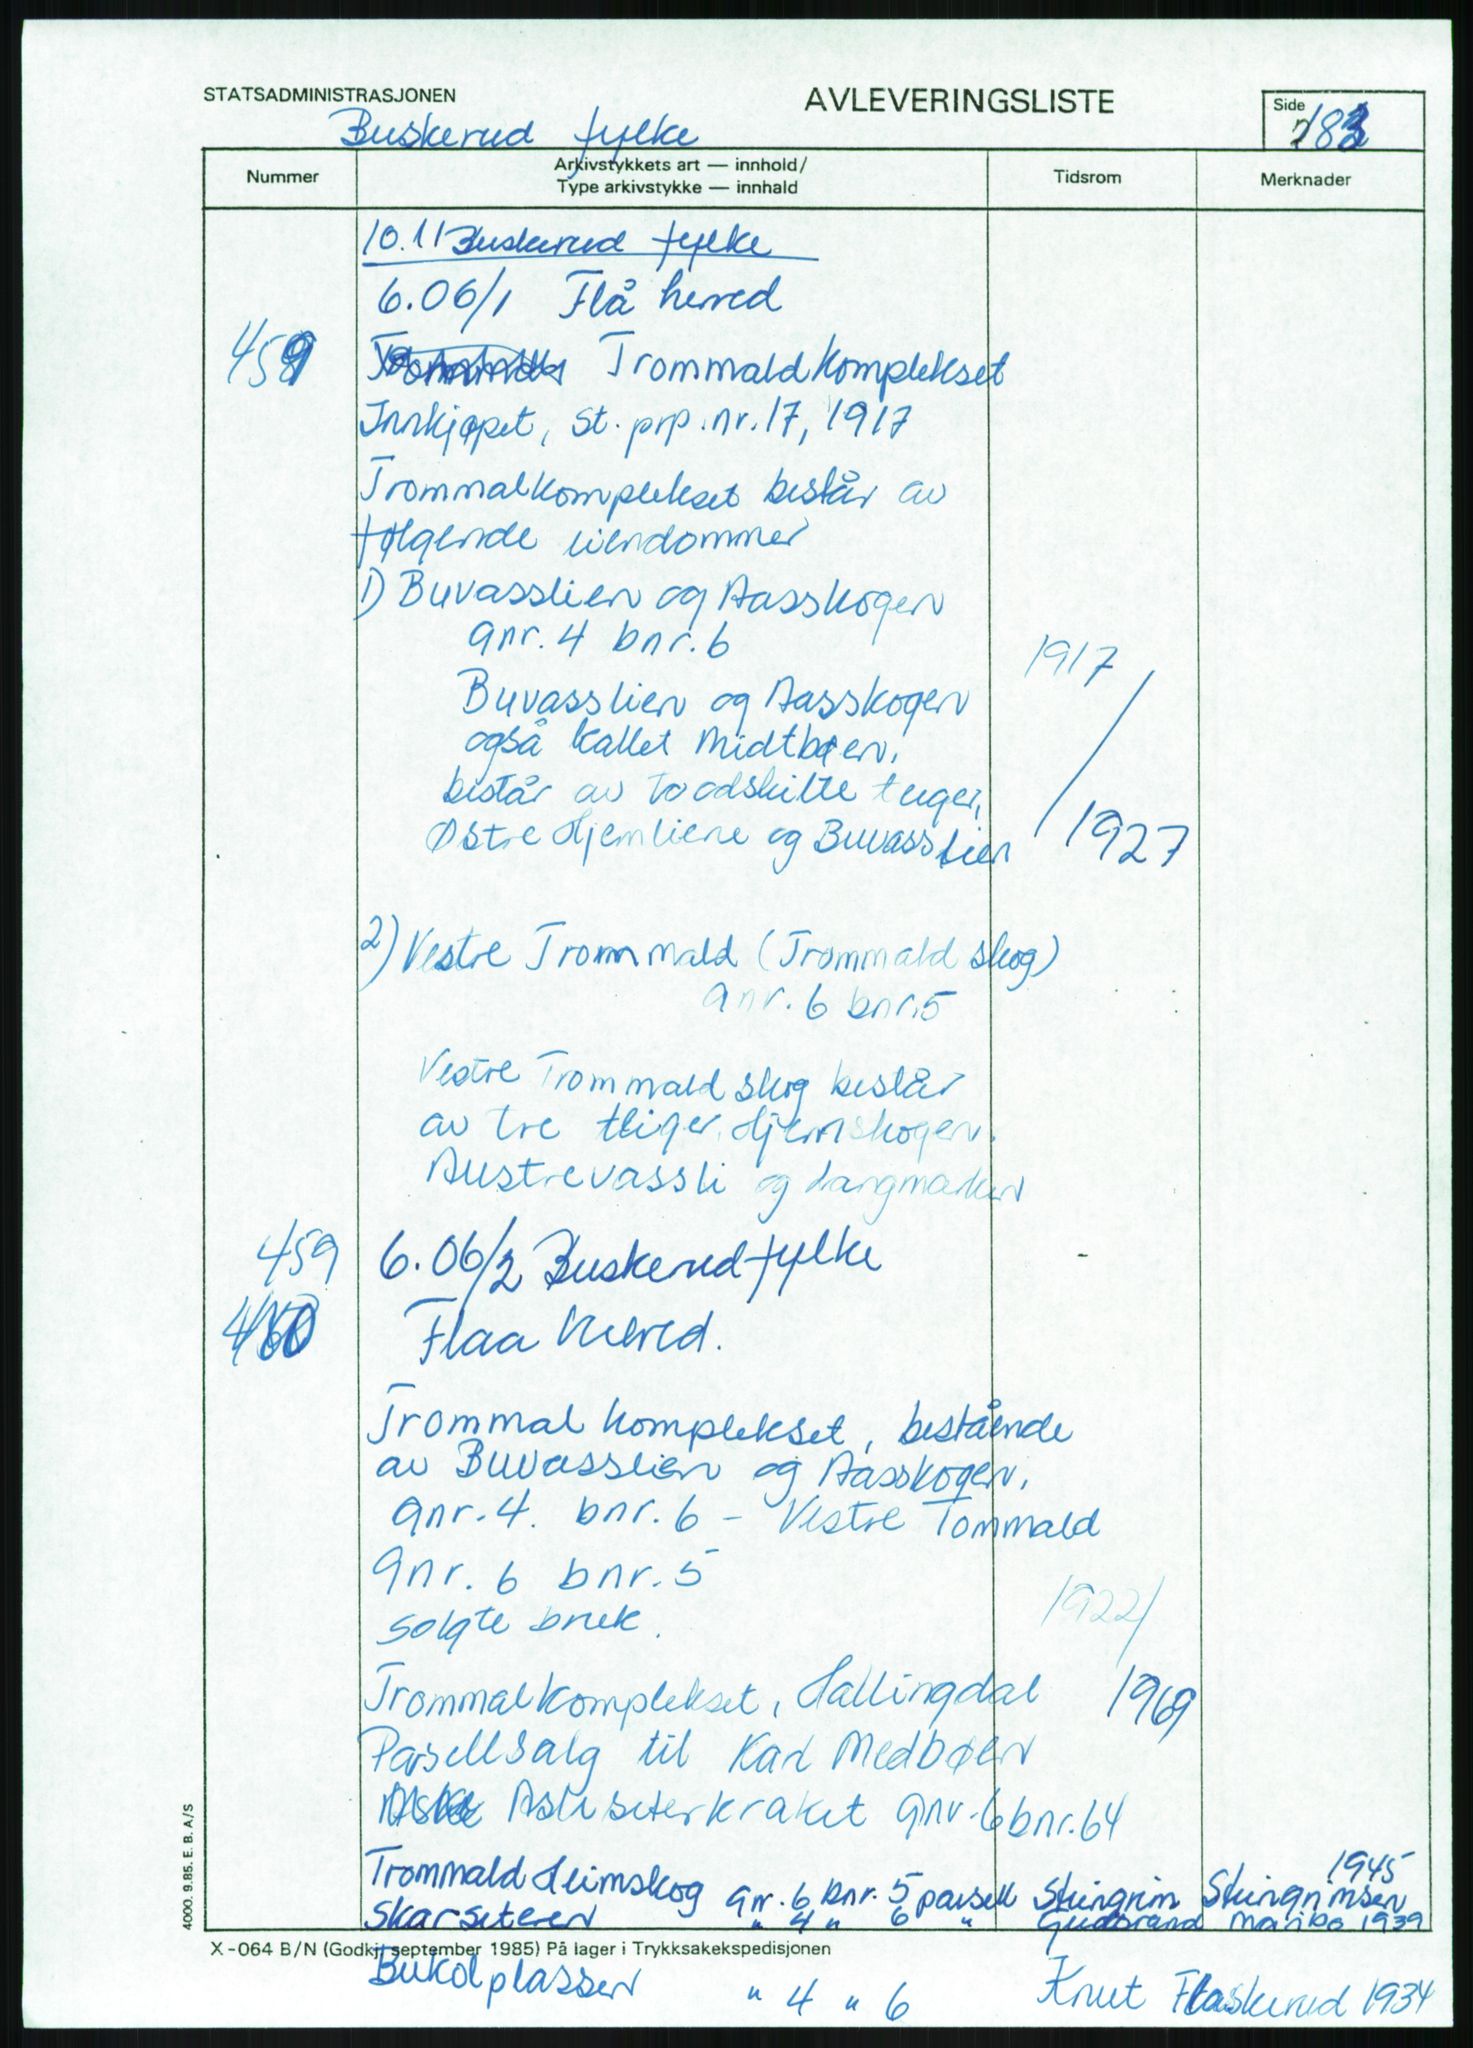 STATSADMINISTRASJONEN
AVLEVERINGSLISTE
Side 183
Buskerud fylke
Nummer
Arkivstykkets art — innhold/
Type arkivstykke — innhald
Tidsrom
Merknader
10.11 Buskerud fylke
6.06/1 Flå herred
459 Trommaldkomplekset
Innkjøpet, St. prp. nr. 17, 1917
Trommalkomplekset består av
følgende eiendommer
1) Buvasslien og Aasskogen
gnr. 4 bnr. 6
1917
Buvasslien og Aasskogen
også kallet Midtbøen,
består av to adskilte teiger,
Østre Hjemliene og Buvasslien
/ 1927
2) Vestre Trommald (Trommald skog)
gnr. 6 bnr. 5
Vestre Trommald skog består
av tre teiger, Hjemskogen.
Austrevassli og Langmarken
459 6.06/2 Buskerud fylke
460 Flaa herred.
Trommal komplekset, bestående
av Buvasslien og Aasskogen,
gnr. 4. bnr. 6 - Vestre Tommald
gnr. 6 bnr. 5
solgte bruk.
1922/
Trommalkomplekset, Hallingdal 1969
Parsellsalg til Karl Medbøen
Asleseterkraket gnr. 6 bnr. 64
Trommald Heimskog gnr. 6 bnr. 5 parsell Steingrim Steingrimsen 1945
Skarseteren " 4 " 6 " Gudbrand Maribo 1939
4000. 9.85. E. B. A/S
X-064 B/N (Godkj. september 1985) På lager i Trykksakekspedisjonen
Bukolplassen " 4 " 6 Knut Flaskerud 1934